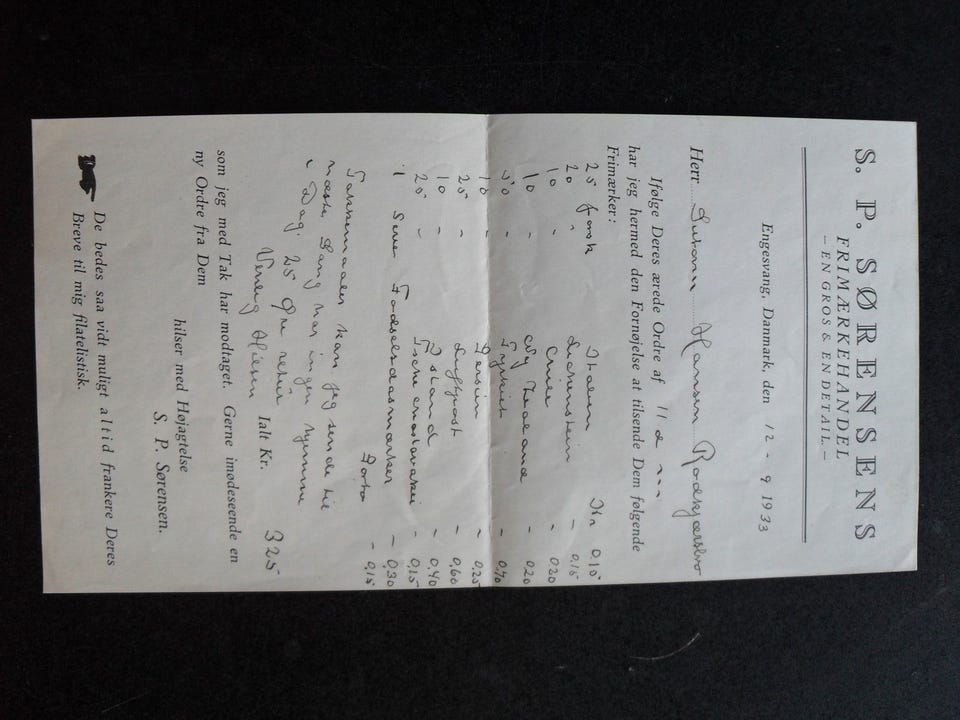 S. P. SØRENSENS
FRIMÆRKEHANDEL
— EN GROS & EN DETAIL. —
Engesvang, Danmark, den 12 - 9 1933
Herr Hansen Rødkjærsbro
Ifølge Deres ærede Ordre af 11 ds
har jeg hermed den Fornøjelse at tilsende Dem følgende
Frimærker:
25 forsk Italien Kr 0,10
20 " Lichenstein - 0,15
10 - - 0,20
10 - Ny Zealand - 0,20
50 - Tyrkiet - 0,40
10 - Persien - 0,25
25 - Luftpost - 0,60
10 - Island - 0,40
25 - - 0,15
1 Serie - 0,30
Porto - 0,15
kan jeg sende til
næste Gang har ingen hjemme
i Dag. 25 Øre retur
Venlig Hilsen Ialt Kr. 325
som jeg med Tak har modtaget. Gerne imødeseende en
ny Ordre fra Dem
hilser med Højagtelse
S. P. Sørensen.
De bedes saa vidt muligt altid frankere Deres
Breve til mig filatelistisk.